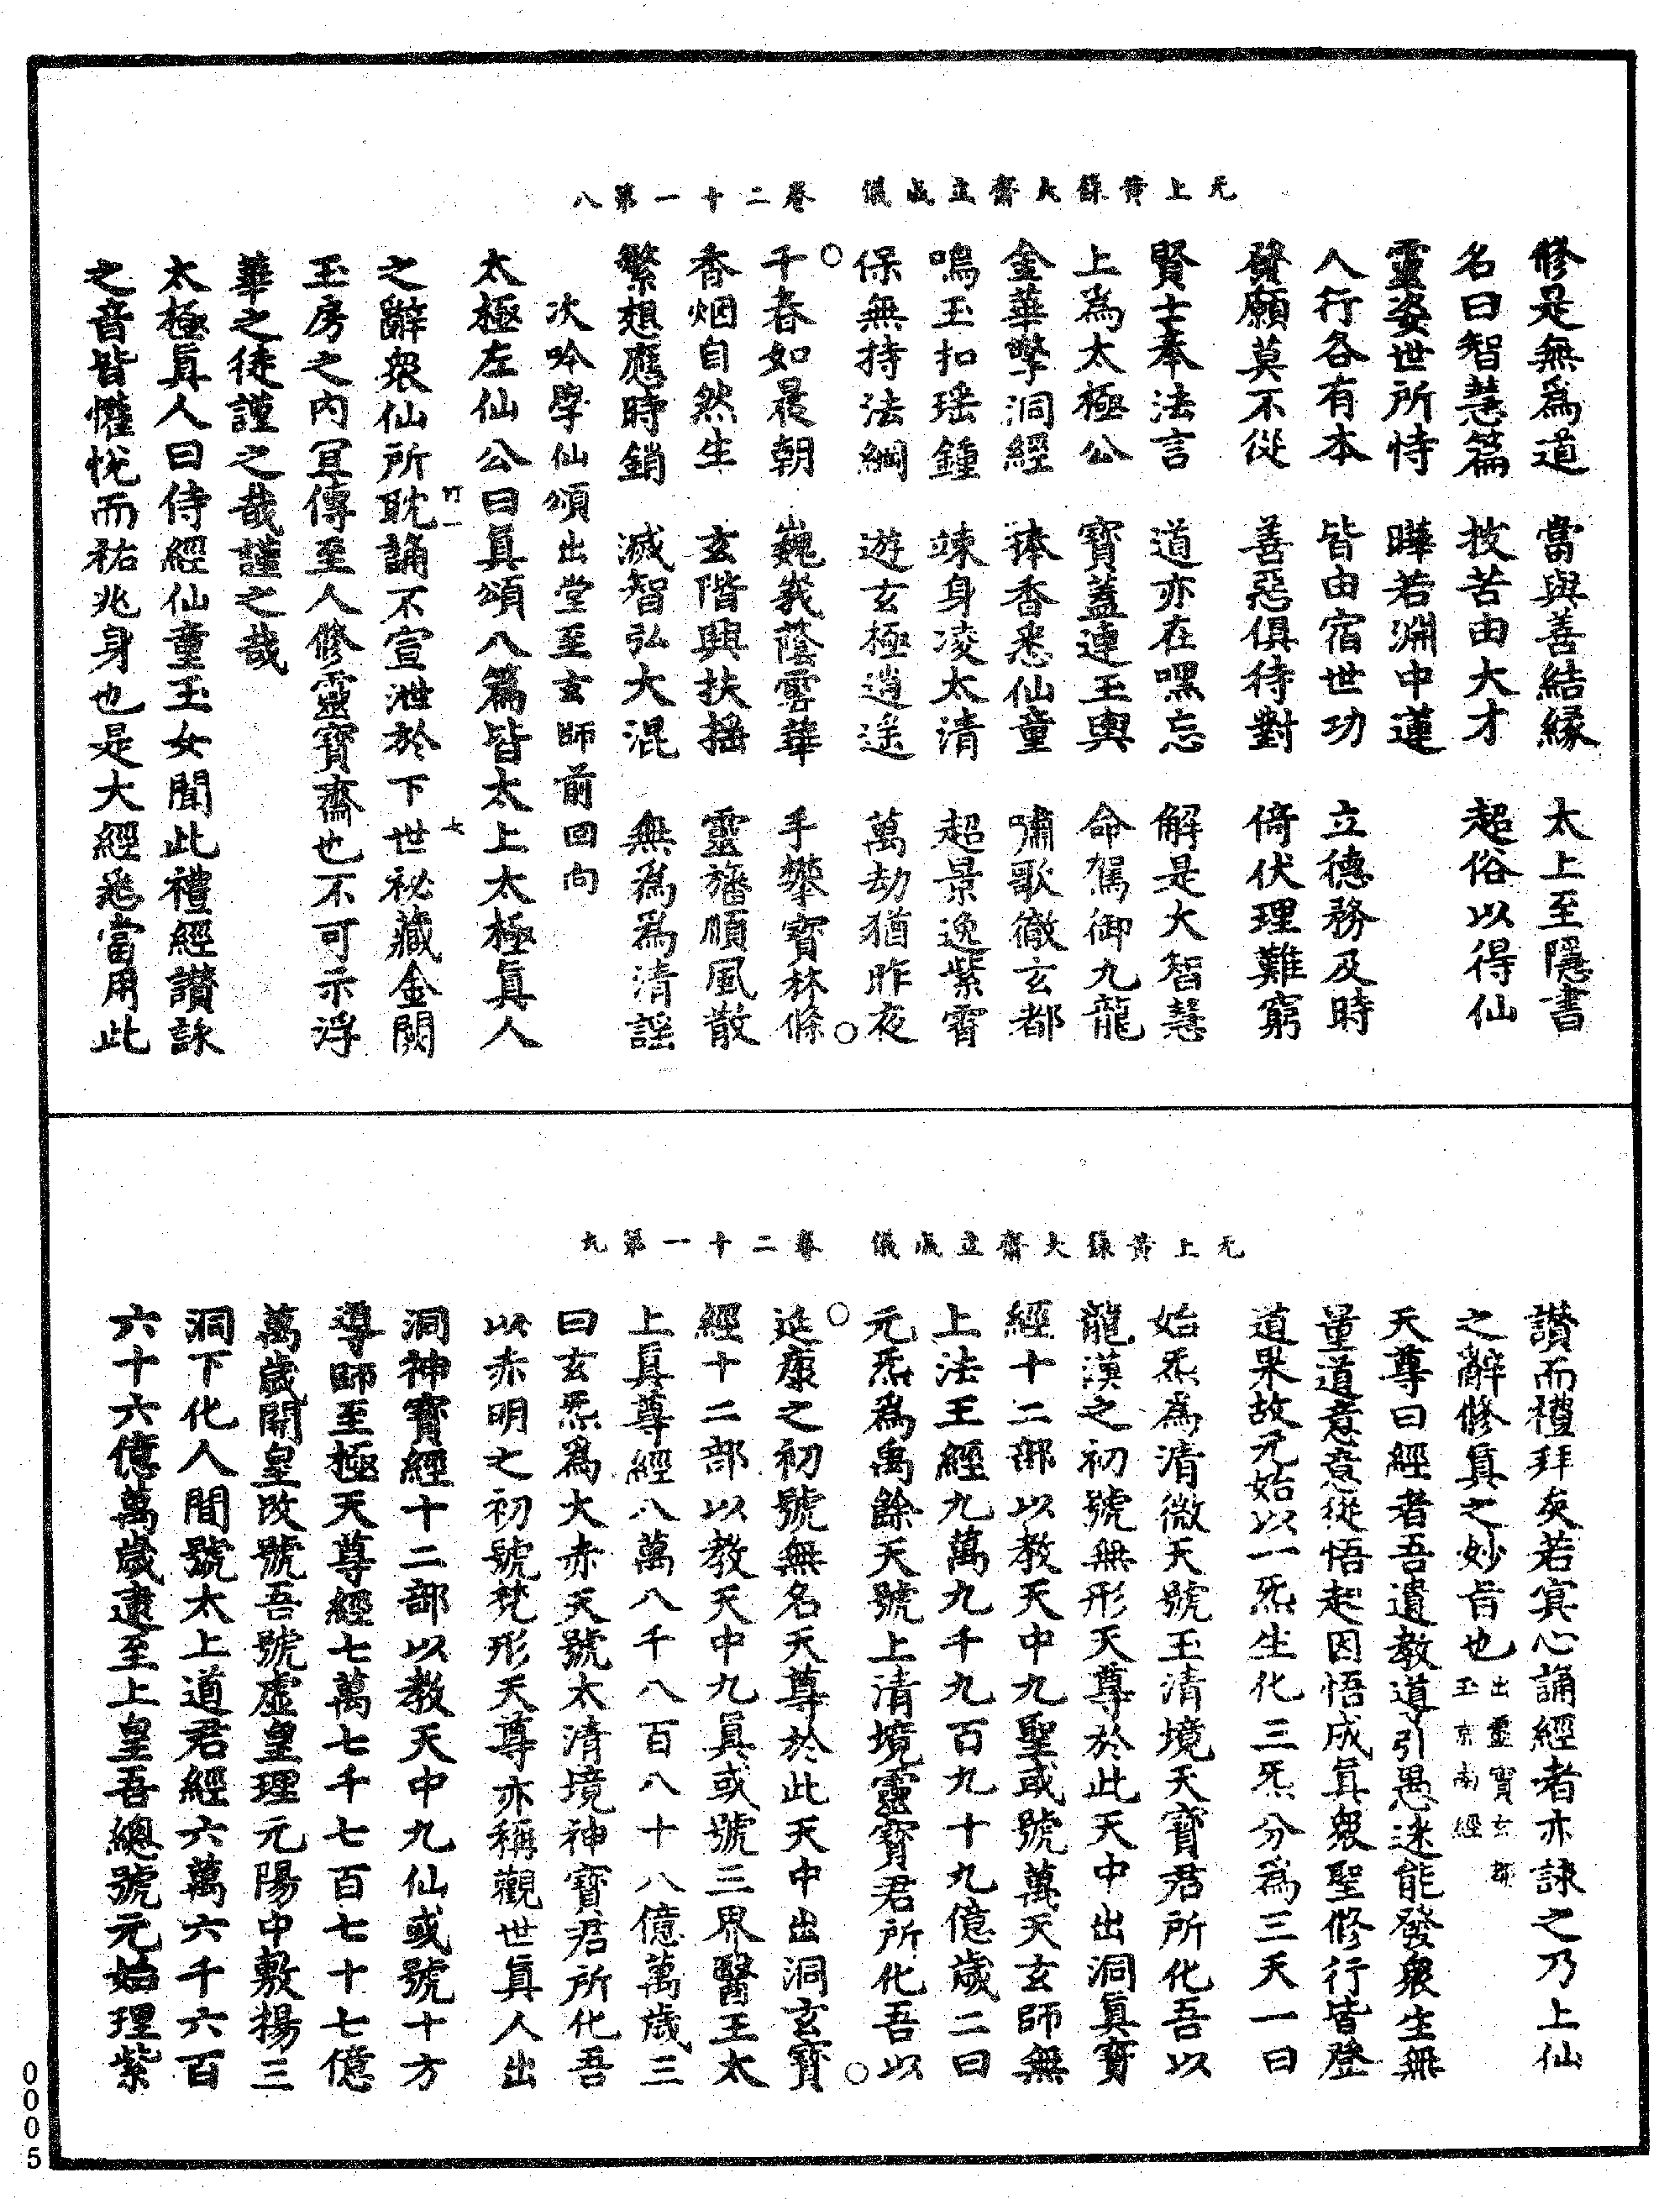 无上黃籙大齋立成儀　卷二十一第八
修是無爲道　當與善結緣　太上至隱書
名曰智慧篇　拔苦由大才　超俗以得仙
靈姿世所恃　曄若淵中蓮
人行各有本　皆由宿世功　立德務及時
發願莫不從　善惡俱待對　倚伏理難窮
賢士奉法言　道亦在嘿忘　解是大智慧
上爲太極公　寶蓋連玉輿　命駕御九龍
金華擎洞經　捧香悉仙童　嘯歌徹玄都
鳴玉扣瑤鍾　竦身凌太清　超景逸紫霄
保無持法綱　遊玄極逍遙　萬劫猶昨夜
千春如晨朝　巍峩蔭雲華　手攀寶林條
香烟自然生　玄階興扶搖　靈旛順風散
繁想應時銷　滅智弘大混　無爲爲清謠
次吟學仙頌出堂至玄師前回向
太極左仙公曰眞頌八篇皆太上太極眞人
之辭衆仙所耽誦不宣泄於下世祕藏金闕
竹一　七
玉房之內冝傳至人修靈寶齋也不可示浮
華之徒謹之哉謹之哉
太極眞人曰侍經仙童玉女聞此禮經讃詠
之音皆懽悅而祐兆身也是大經悉當用此
无上黃籙大齋立成儀　卷二十一第九
讃而禮拜矣若寘心誦經者亦詠之乃上仙
之辭修眞之妙旨也出靈寶玄都玉京南經
天尊曰經者吾遺教導引愚迷能發衆生無
量道意意從悟起因悟成眞衆聖修行皆登
道果故元始以一炁生化三炁分爲三天一曰
始炁爲清微天號玉清境天寶君所化吾以
龍漢之初號無形天尊於此天中出洞眞寶
經十二部以教天中九聖或號萬天玄師無
上法王經九萬九千九百九十九億歲二曰
元炁爲禹餘天號上清境靈寶君所化吾以
延康之初號無名天尊於此天中出洞玄寶
經十二部以教天中九眞或號三界醫王太
上眞尊經八萬八千八百八十八億萬歲三
曰玄炁爲大赤天號太清境神寶君所化吾
以赤明之初號梵形天尊亦稱觀世眞人出
洞神寶經十二部以教天中九仙或號十方
導師至極天尊經七萬七千七百七十七億
萬歲開皇改號吾號虛皇理元陽中敷揚三
洞下化人間號太上道君經六萬六千六百
六十六億萬歲逮至上皇吾總號元始理紫
00005